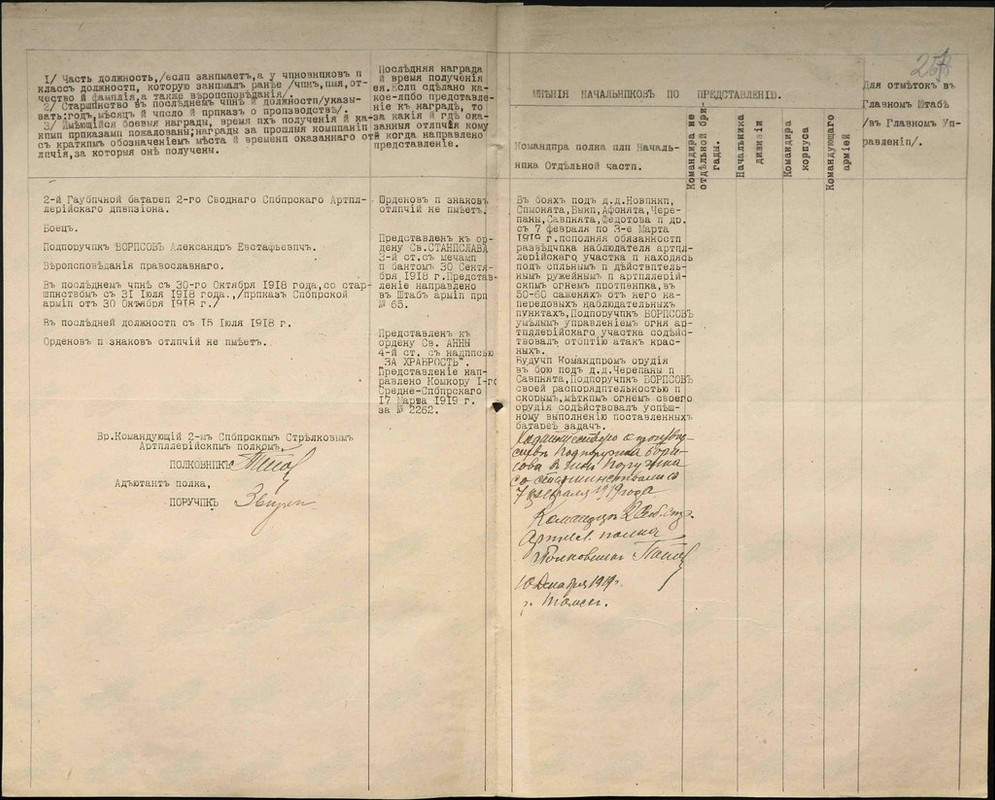 1/ Часть должность,/если занимаетъ,а у чиновниковъ и
классъ должности, которую занималъ ранѣе /чинъ,имя,от-
чество и фамилія,а также вѣроисповѣданія/.
2/ Старшинство въ послѣднемъ чинѣ и должности/указы-
вать:годъ,мѣсяцъ и число и приказъ о производствѣ/.
3/ Имѣющійся боевыя награды, время ихъ полученія и ка-
кими приказами пожалованы;награды за прошлыя компаніи
съ краткимъ обозначеніемъ мѣста и времени оказаннаго от
личія,за которыя онѣ получены.
Послѣдняя награда
и время полученія
ея.Если сдѣлано ка-
кое-либо представле-
ніе къ наградѣ, то
за какія и гдѣ ока-
занныя отличія кому
и когда направлено
представленіе.
МНѢНІЯ НАЧАЛЬНИКОВЪ ПО ПРЕДСТАВЛЕНІЮ.
Командира полка или Началь-
ника Отдѣльной части.
Командира не
отдѣльной бри-
гады.
Начальника
дивизіи
Командира
корпуса
Командующаго
арміей
Для отмѣтокъ въ
Главномъ Штабѣ
/въ Главномъ Уп-
равленіи/.
2-й Гаубичной батареи 2-го Своднаго Сибирскаго Артил-
лерійскаго дивизіона.
Боецъ.
Подпоручикъ БОРИСОВЪ Александръ Евстафьевичъ.
Вѣроисповѣданія православнаго.
Въ послѣднемъ чинѣ съ 30-го Октября 1918 года,со стар-
шинствомъ съ 31 Іюля 1918 года.,/приказъ Сибирской
арміи отъ 30 Октября 1918 г./
Въ послѣдней должности съ 15 Іюля 1918 г.
Орденовъ и знаковъ отличій не имѣетъ.
Орденовъ и знаковъ
отличій не имѣетъ.
Представленъ къ ор-
дену Св.СТАНИСЛАВА
3-й ст.съ мечами
и бантомъ 30 Сентя-
бря 1918 г.Представ-
леніе направлено
въ Штабъ арміи при
№ 65.
Представленъ къ
ордену Св. АННЫ
4-й ст. съ надписью
"ЗА ХРАБРОСТЬ".
Представленіе нап-
равлено Комкору 1-го
Средне-Сибирскаго
17 Марта 1919 г.
за № 2262.
Въ бояхъ подъ д.д.Новпнкп,
Симонята,Быкп,Афонята,Чере-
паны,Савинята,Федотова и др.
съ 7 февраля по 3-е Марта
1919 г.исполняя обязанности
развѣдчика наблюдателя артил-
лерійскаго участка и находясь
подъ сильнымъ и дѣйствитель-
нымъ ружейнымъ и артиллерій-
скимъ огнемъ противника,въ
50-60 саженяхъ отъ него на-
передовыхъ наблюдательныхъ
пунктахъ,Подпоручикъ БОРИСОВЪ
умѣлымъ управленіемъ огня ар-
тиллерійскаго участка содѣйс-
твовалъ отбитію атакъ крас-
ныхъ.
Будучи Командиромъ орудія
въ бою подъ д.д.Черепаны и
Савинята,Подпоручикъ БОРИСОВЪ
своей распорядительностью и
скорымъ,мѣткимъ огнемъ своего
орудія содѣйствовалъ успѣш-
ному выполненію поставленныхъ
батареѣ задачъ.
Ходатайствую о
Подпоручика Бори-
сова въ чинъ Поручика
со старшинствомъ съ
7 февраля 1919 года
Командиръ 2 Сиб. стр.
Артил. полка
Полковникъ
10 1919 г.
г. Томскъ.
Вр.Командующій 2-мъ Сибирскимъ Стрѣлковымъ
Артиллерійскимъ полкомъ,
ПОЛКОВНИКЪ
Адъютантъ полка,
ПОРУЧИКЪ